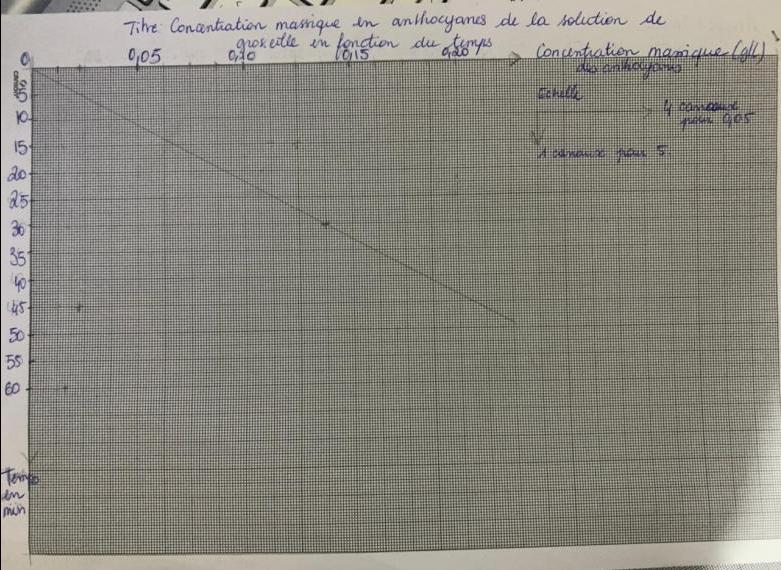 Titre: Concentration massique en anthocyanes de la solution de
groseille en fonction du temps
Concentration massique (g/L)
des anthocyanes
0 0,05 0,10 0,15 0,20
Echelle
4 careaux
pour 0,05
1 careaux pour 5
5
10
15
20
25
30
35
40
45
50
55
60
Temps
en
min